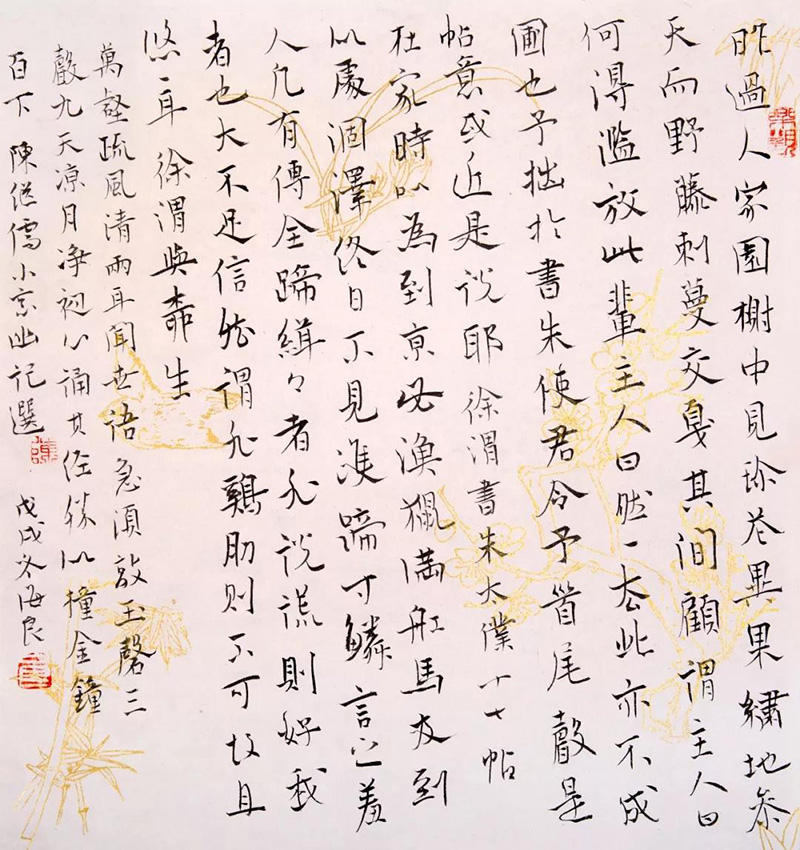 昨過人家園榭中見珍花異果繡地參
天而野藤刺蔓交戛其間顧謂主人曰
何得濫放此輩主人曰然一去此亦不成
圃也予拙於書朱使君令予首尾是
帖意或近是说耶 徐渭書朱太僕十七帖
在家時以為到京必漁獵滿船馬及到
似處涸澤終日不見隻蹄寸鱗言之羞
人凡有傳全蹄緝々者非说謊則好我
者也大不足信然謂非鷄肋則不可故且
悠々耳 徐渭與柳生
萬壑疏風清兩耳聞世語急須敲玉磬三
聲九天凉月净初心誦其經勝似撞金鐘
百下 陳繼儒小窗幽記選 戊戌冬海良